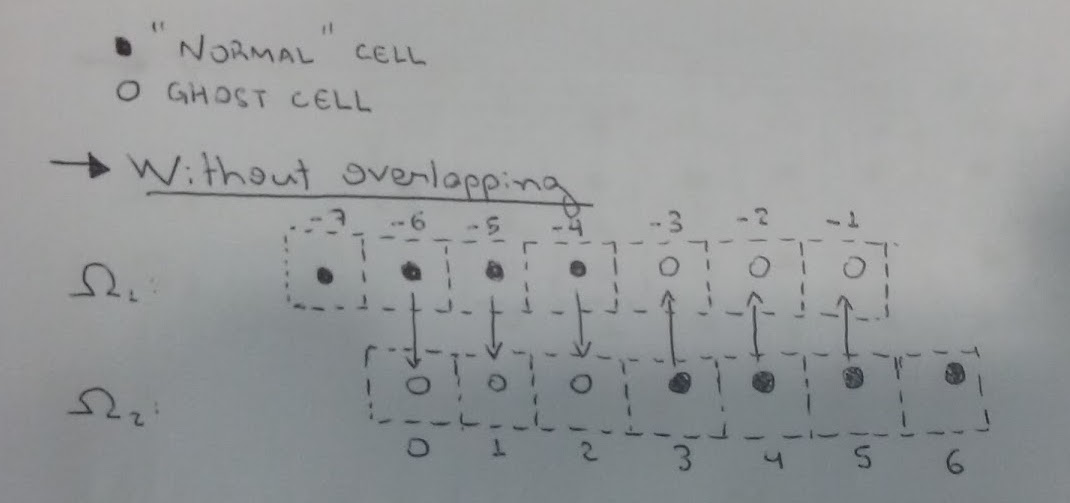 ● "NORMAL" CELL
○ GHOST CELL
→ Without overlapping
-7 -6 -5 -4 -3 -2 -1
Ω₁:
Ω₂:
0 1 2 3 4 5 6